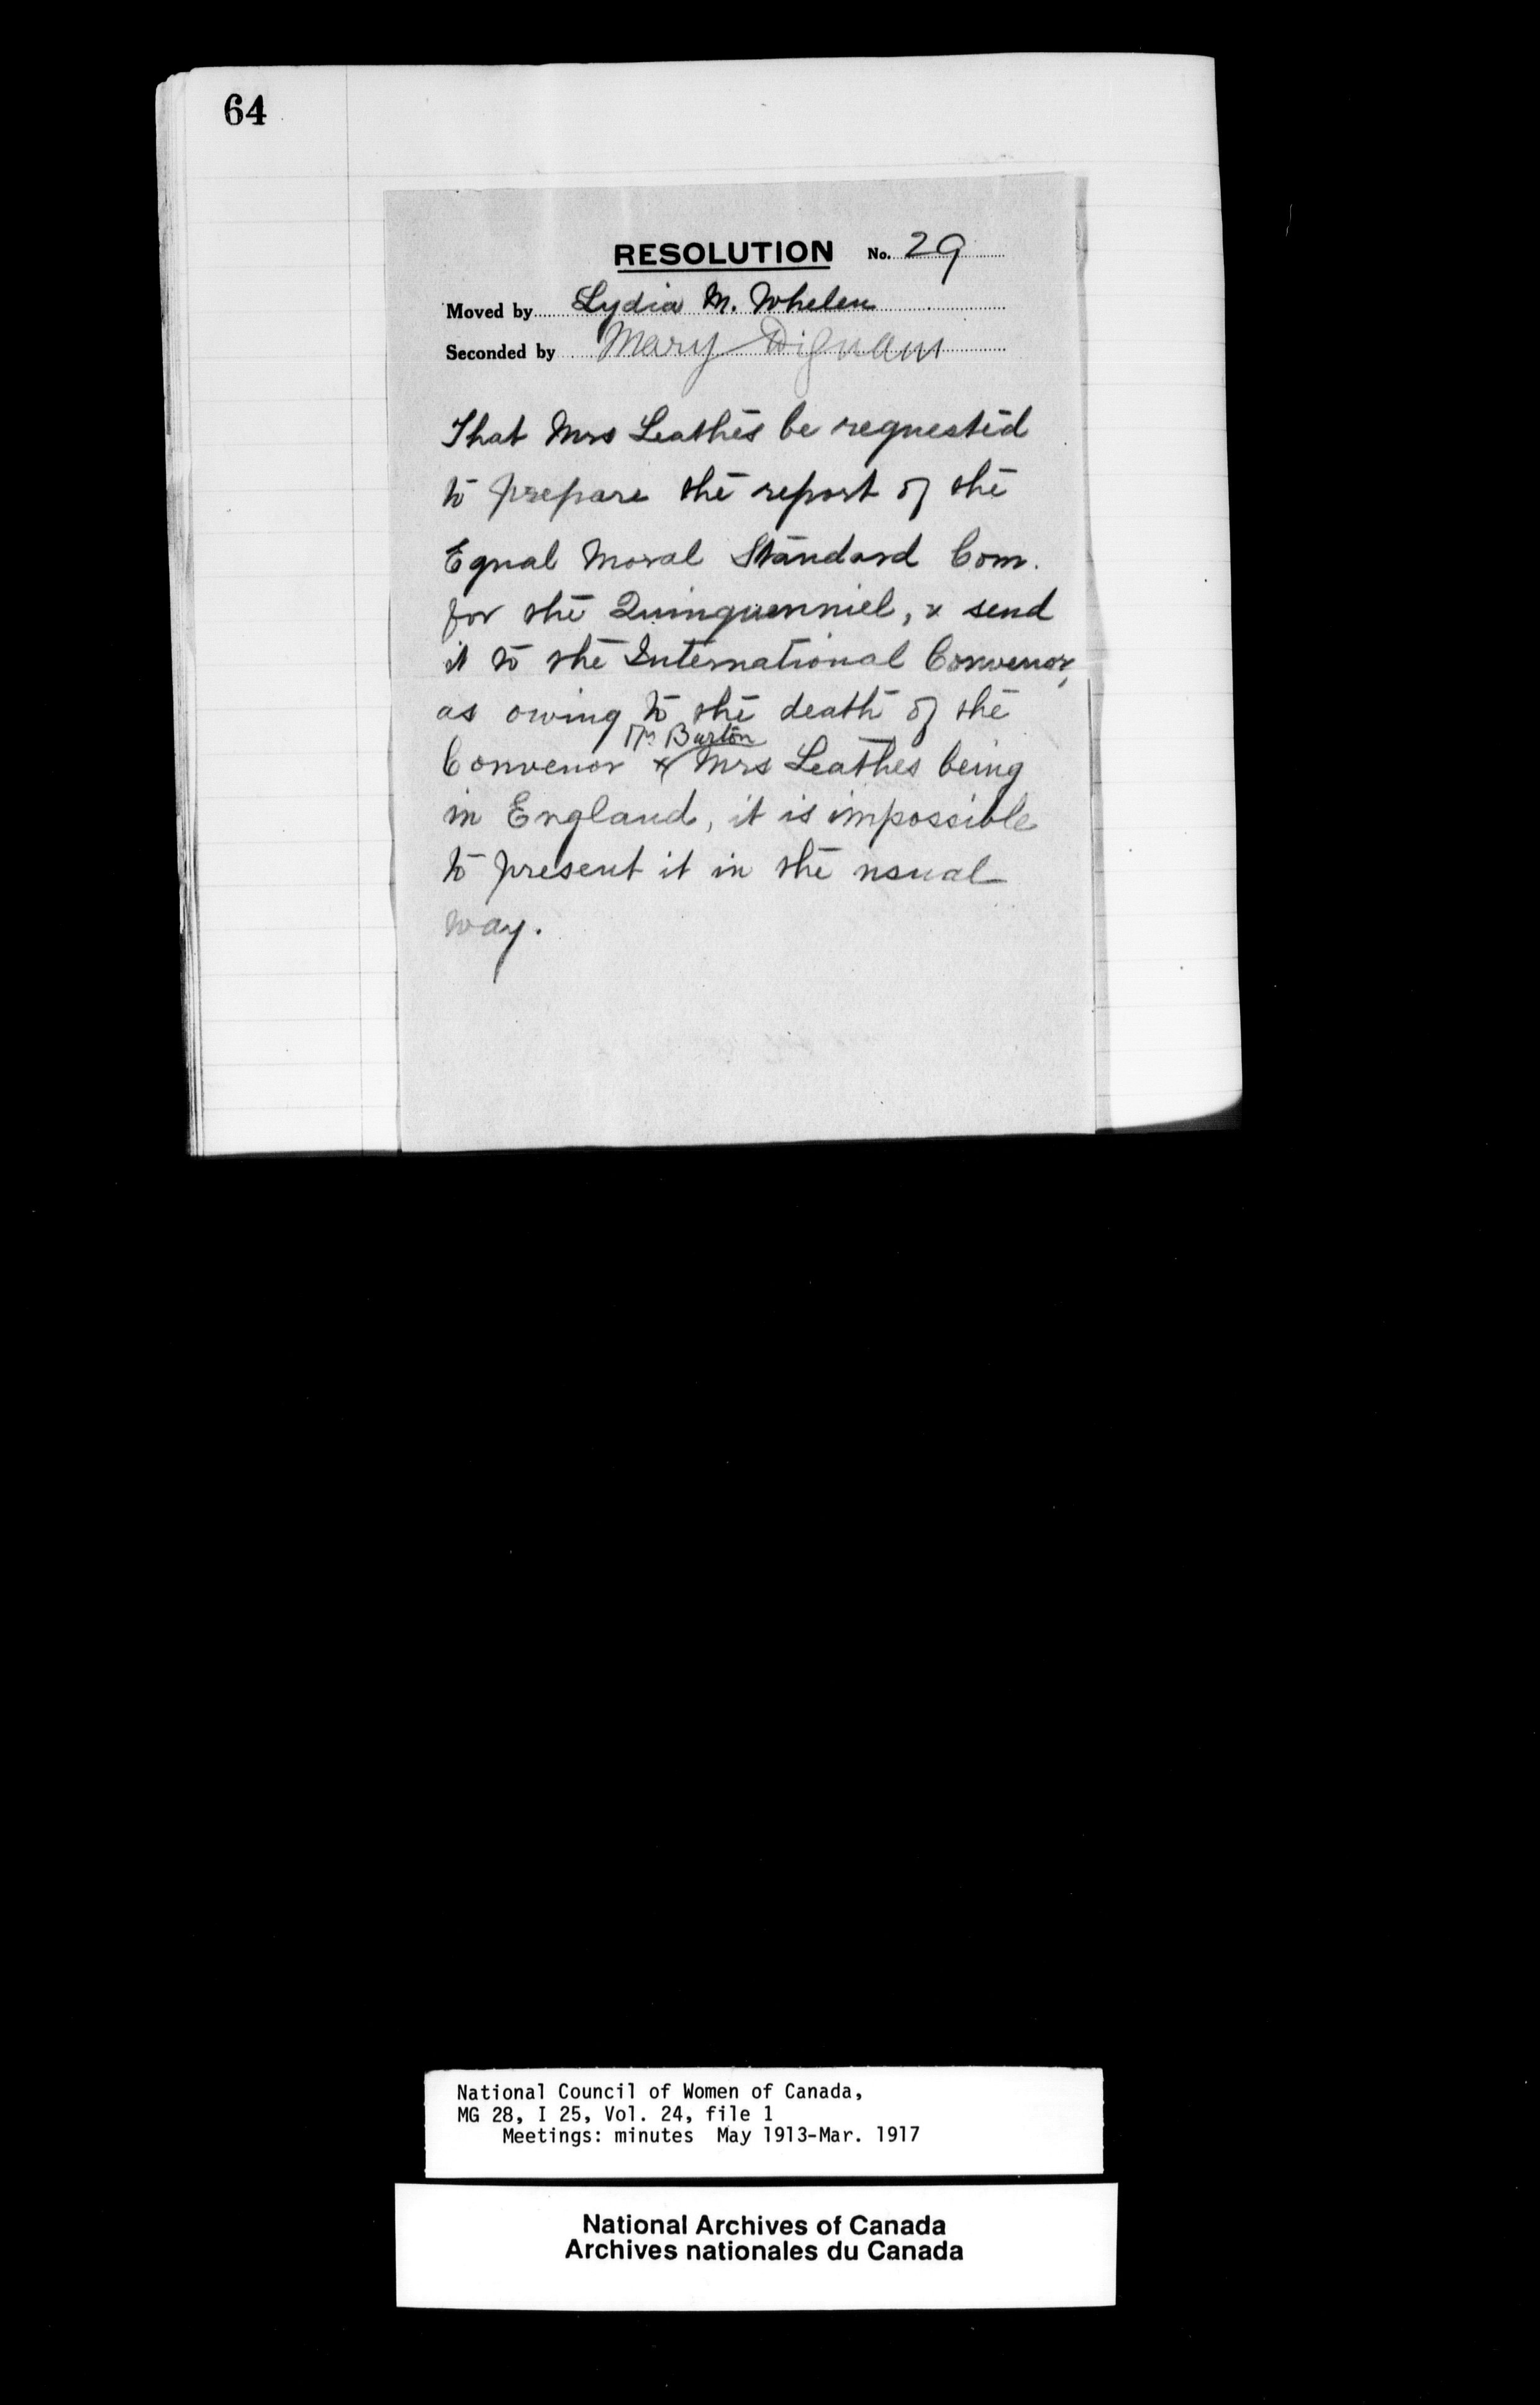 64
RESOLUTION No. 29
Moved by Lydia M. Whelen
Seconded by Mary Dignam
That Mrs Leathes be requested
to prepare the report of the
Equal Moral Standard Com.
for the Quinquenniel, & send
it to the International Convenor,
as owing to the death of the
Mrs Burton
Convenor & Mrs Leathes being
in England, it is impossible
to present it in the usual
way.
National Council of Women of Canada,
MG 28, I 25, Vol. 24, file 1
Meetings: minutes May 1913-Mar. 1917
National Archives of Canada
Archives nationales du Canada